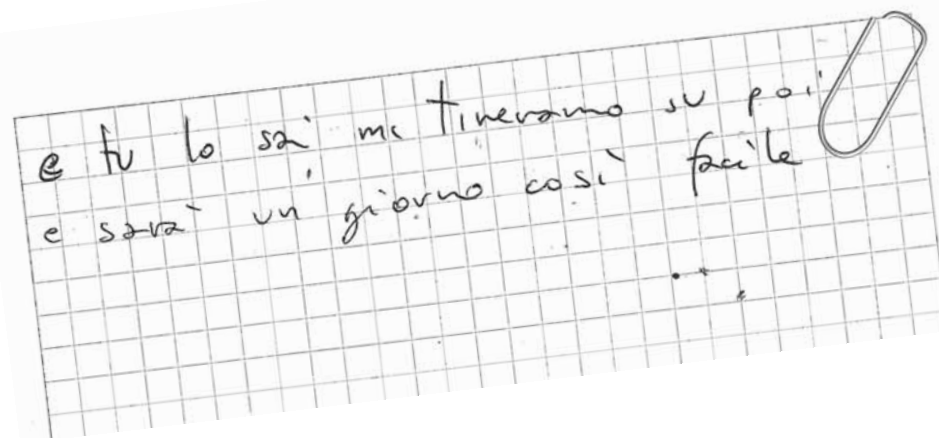 e tu lo sai mi tireranno su poi
e sarà un giorno così facile